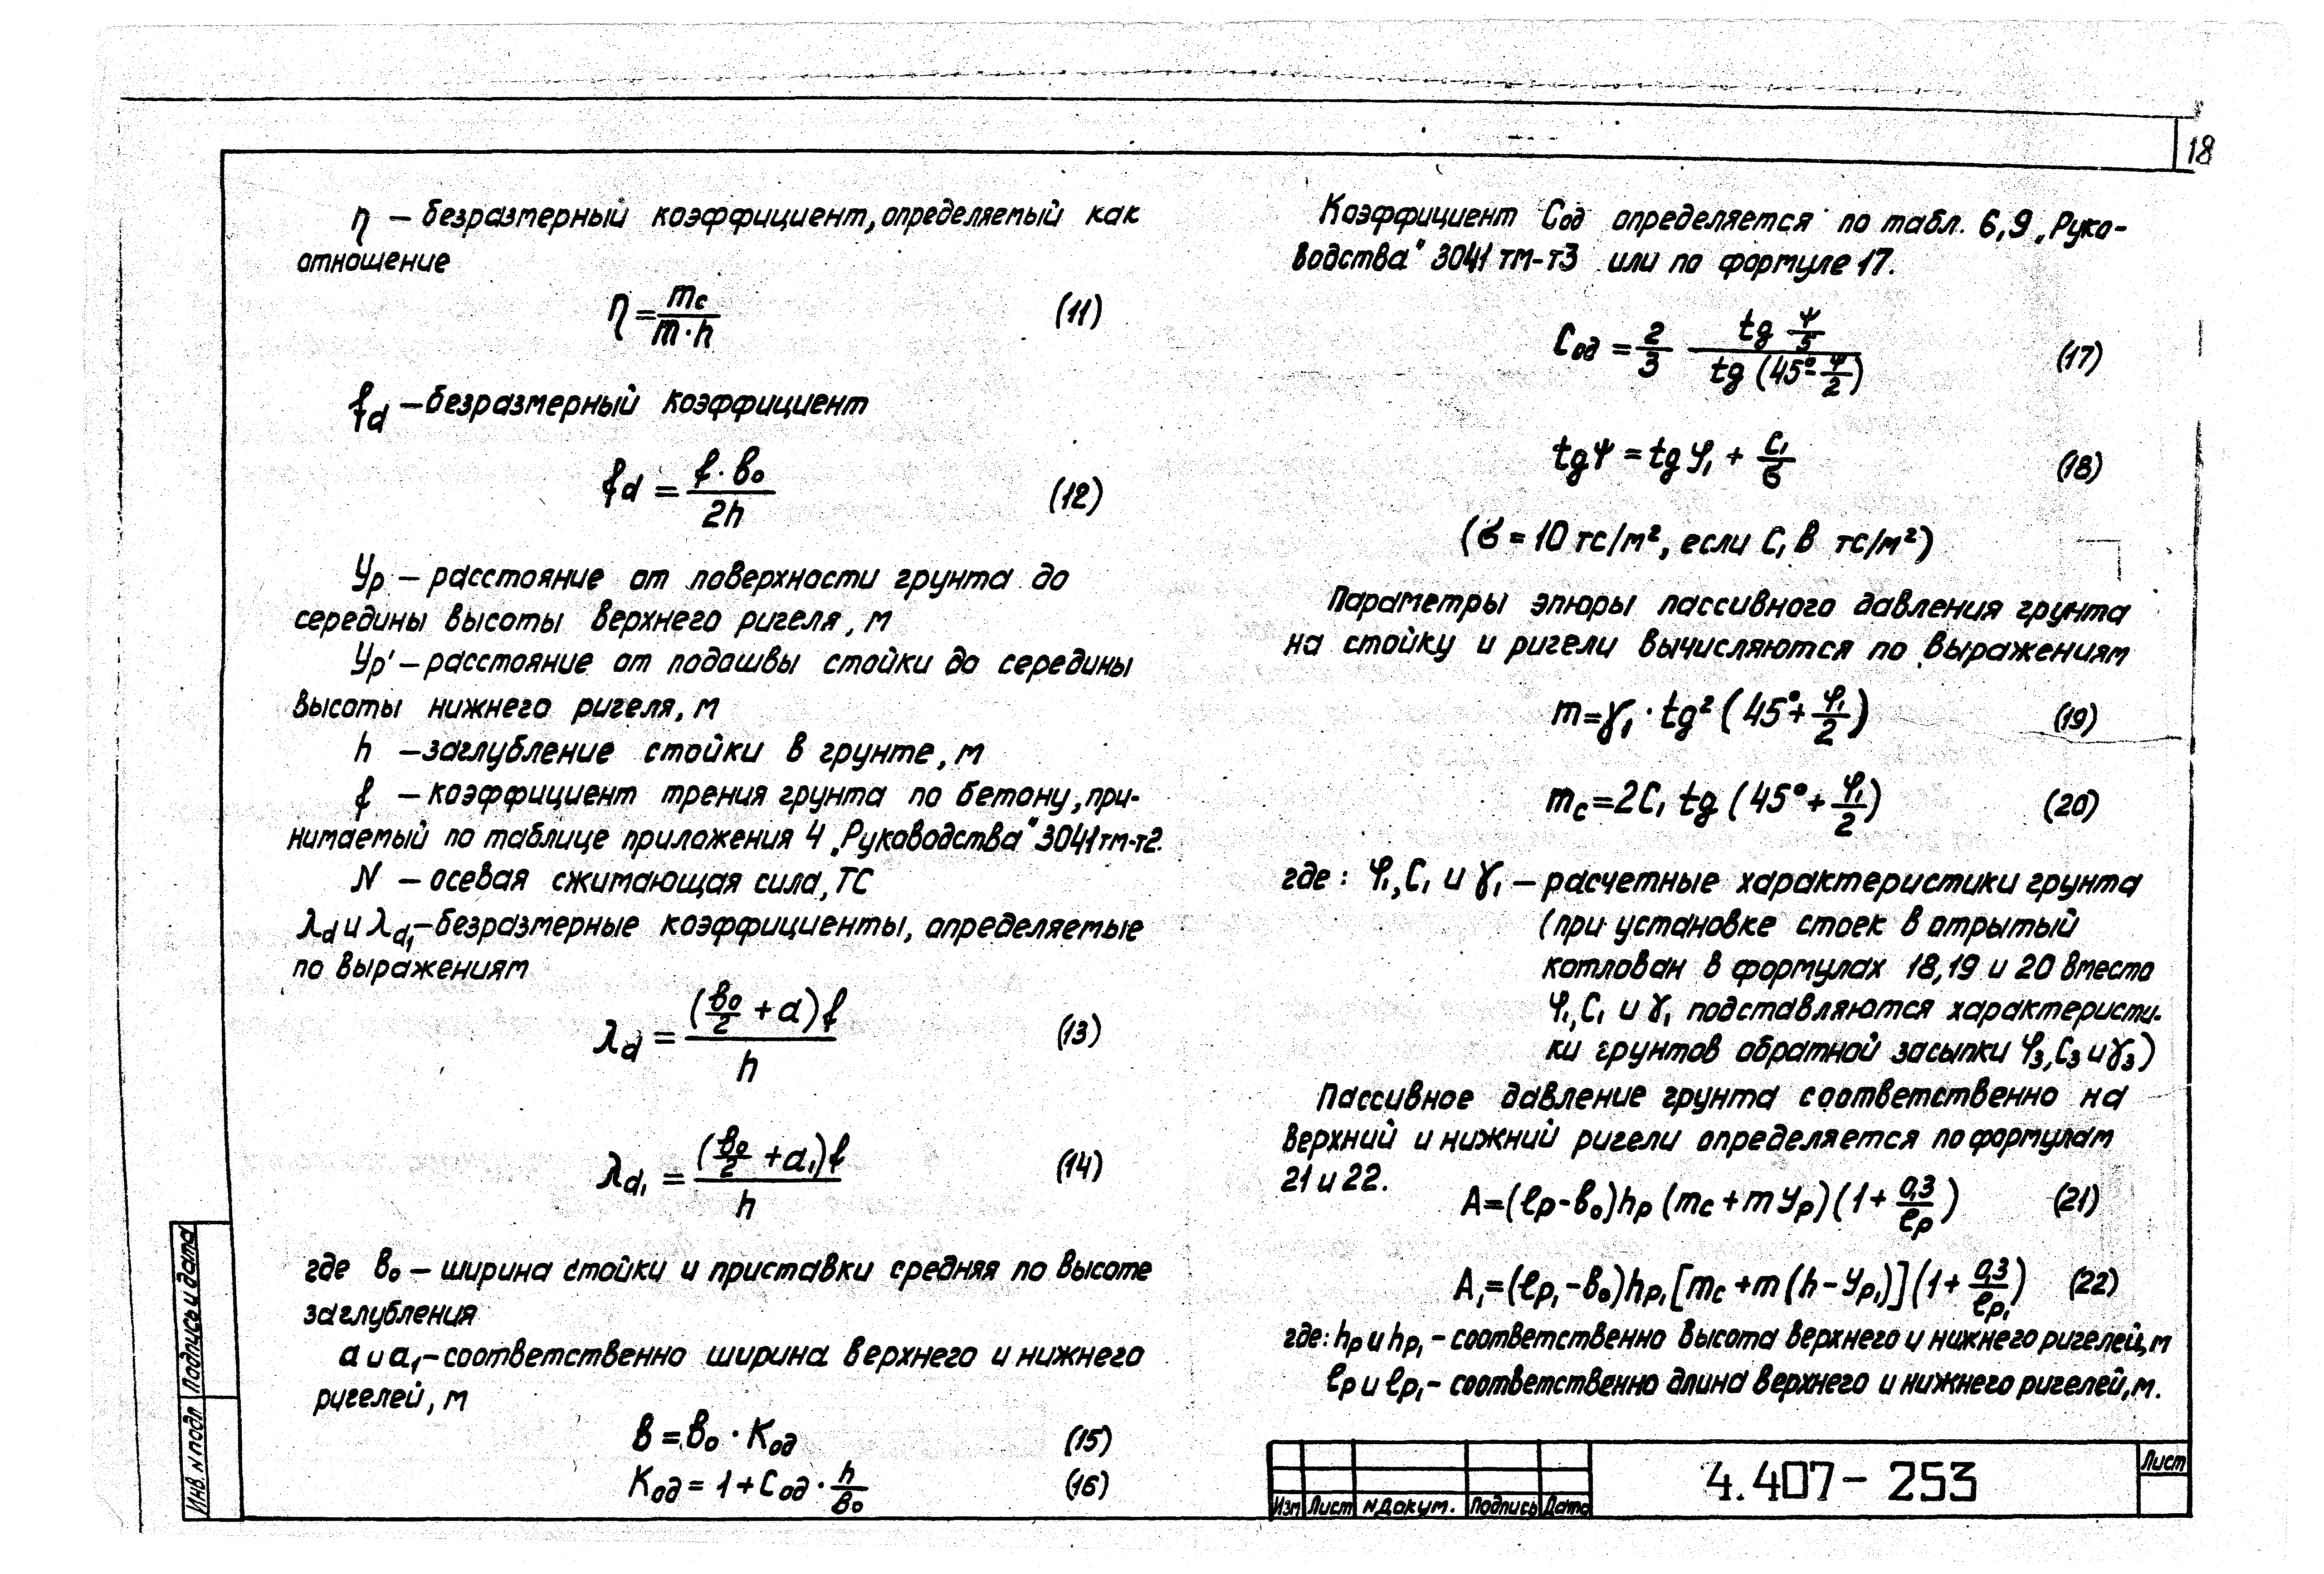 18
η – безразмерный коэффициент, определяемый как
отношение
η = mc / m·h (11)
fd – безразмерный коэффициент
fd = f·в₀ / 2h (12)
Ур – расстояние от поверхности грунта до
середины высоты верхнего ригеля, м
Ур' – расстояние от подошвы стойки до середины
высоты нижнего ригеля, м
h – заглубление стойки в грунте, м
f – коэффициент трения грунта по бетону, при-
нимаемый по таблице приложения 4 „Руководства“ 3041тм-т2.
N – осевая сжимающая сила, ТС
λd и λd₁ – безразмерные коэффициенты, определяемые
по выражениям
λd = (в₀/2 + d)f / h (13)
λd₁ = (в₀/2 + d₁)f / h (14)
где в₀ – ширина стойки и приставки средняя по высоте
заглубления
d и d₁ – соответственно ширина верхнего и нижнего
ригелей, м
в = в₀ · Код (15)
Код = 1 + Сод · h/в₀ (16)
Коэффициент Сод определяется по табл. 6,9 „Руко-
водства“ 3041 тм-т3 или по формуле 17.
Сод = 2/3 tg ψ/5 / tg (45° - ψ/2) (17)
tg ψ = tg φ₁ + C₁/σ (18)
(σ = 10 тс/м², если С₁ в тс/м²)
Параметры эпюры пассивного давления грунта
на стойку и ригели вычисляются по выражениям
m = γ₁ · tg² (45° + φ₁/2) (19)
mc = 2C₁ tg (45° + φ₁/2) (20)
где: φ₁, C₁ и γ₁ – расчетные характеристики грунта
(при установке стоек в отрытый
котлован в формулах 18,19 и 20 вместо
φ₁, C₁ и γ₁ подставляются характеристи-
ки грунтов обратной засыпки φ₃, C₃ и γ₃)
Пассивное давление грунта соответственно на
верхний и нижний ригели определяется по формулам
21 и 22.
A = (ℓр - в₀)hр (mc + m Ур)(1 + 0,3/ℓр) (21)
A₁ = (ℓр₁ - в₀)hр₁ [mc + m (h - Ур₁)](1 + 0,3/ℓр₁) (22)
где: hр и hр₁ – соответственно высота верхнего и нижнего ригелей, м
ℓр и ℓр₁ – соответственно длина верхнего и нижнего ригелей, м.
Инв. N подл Подпись и дата
Изм Лист N докум. Подпись Дата
4.407-253
Лист